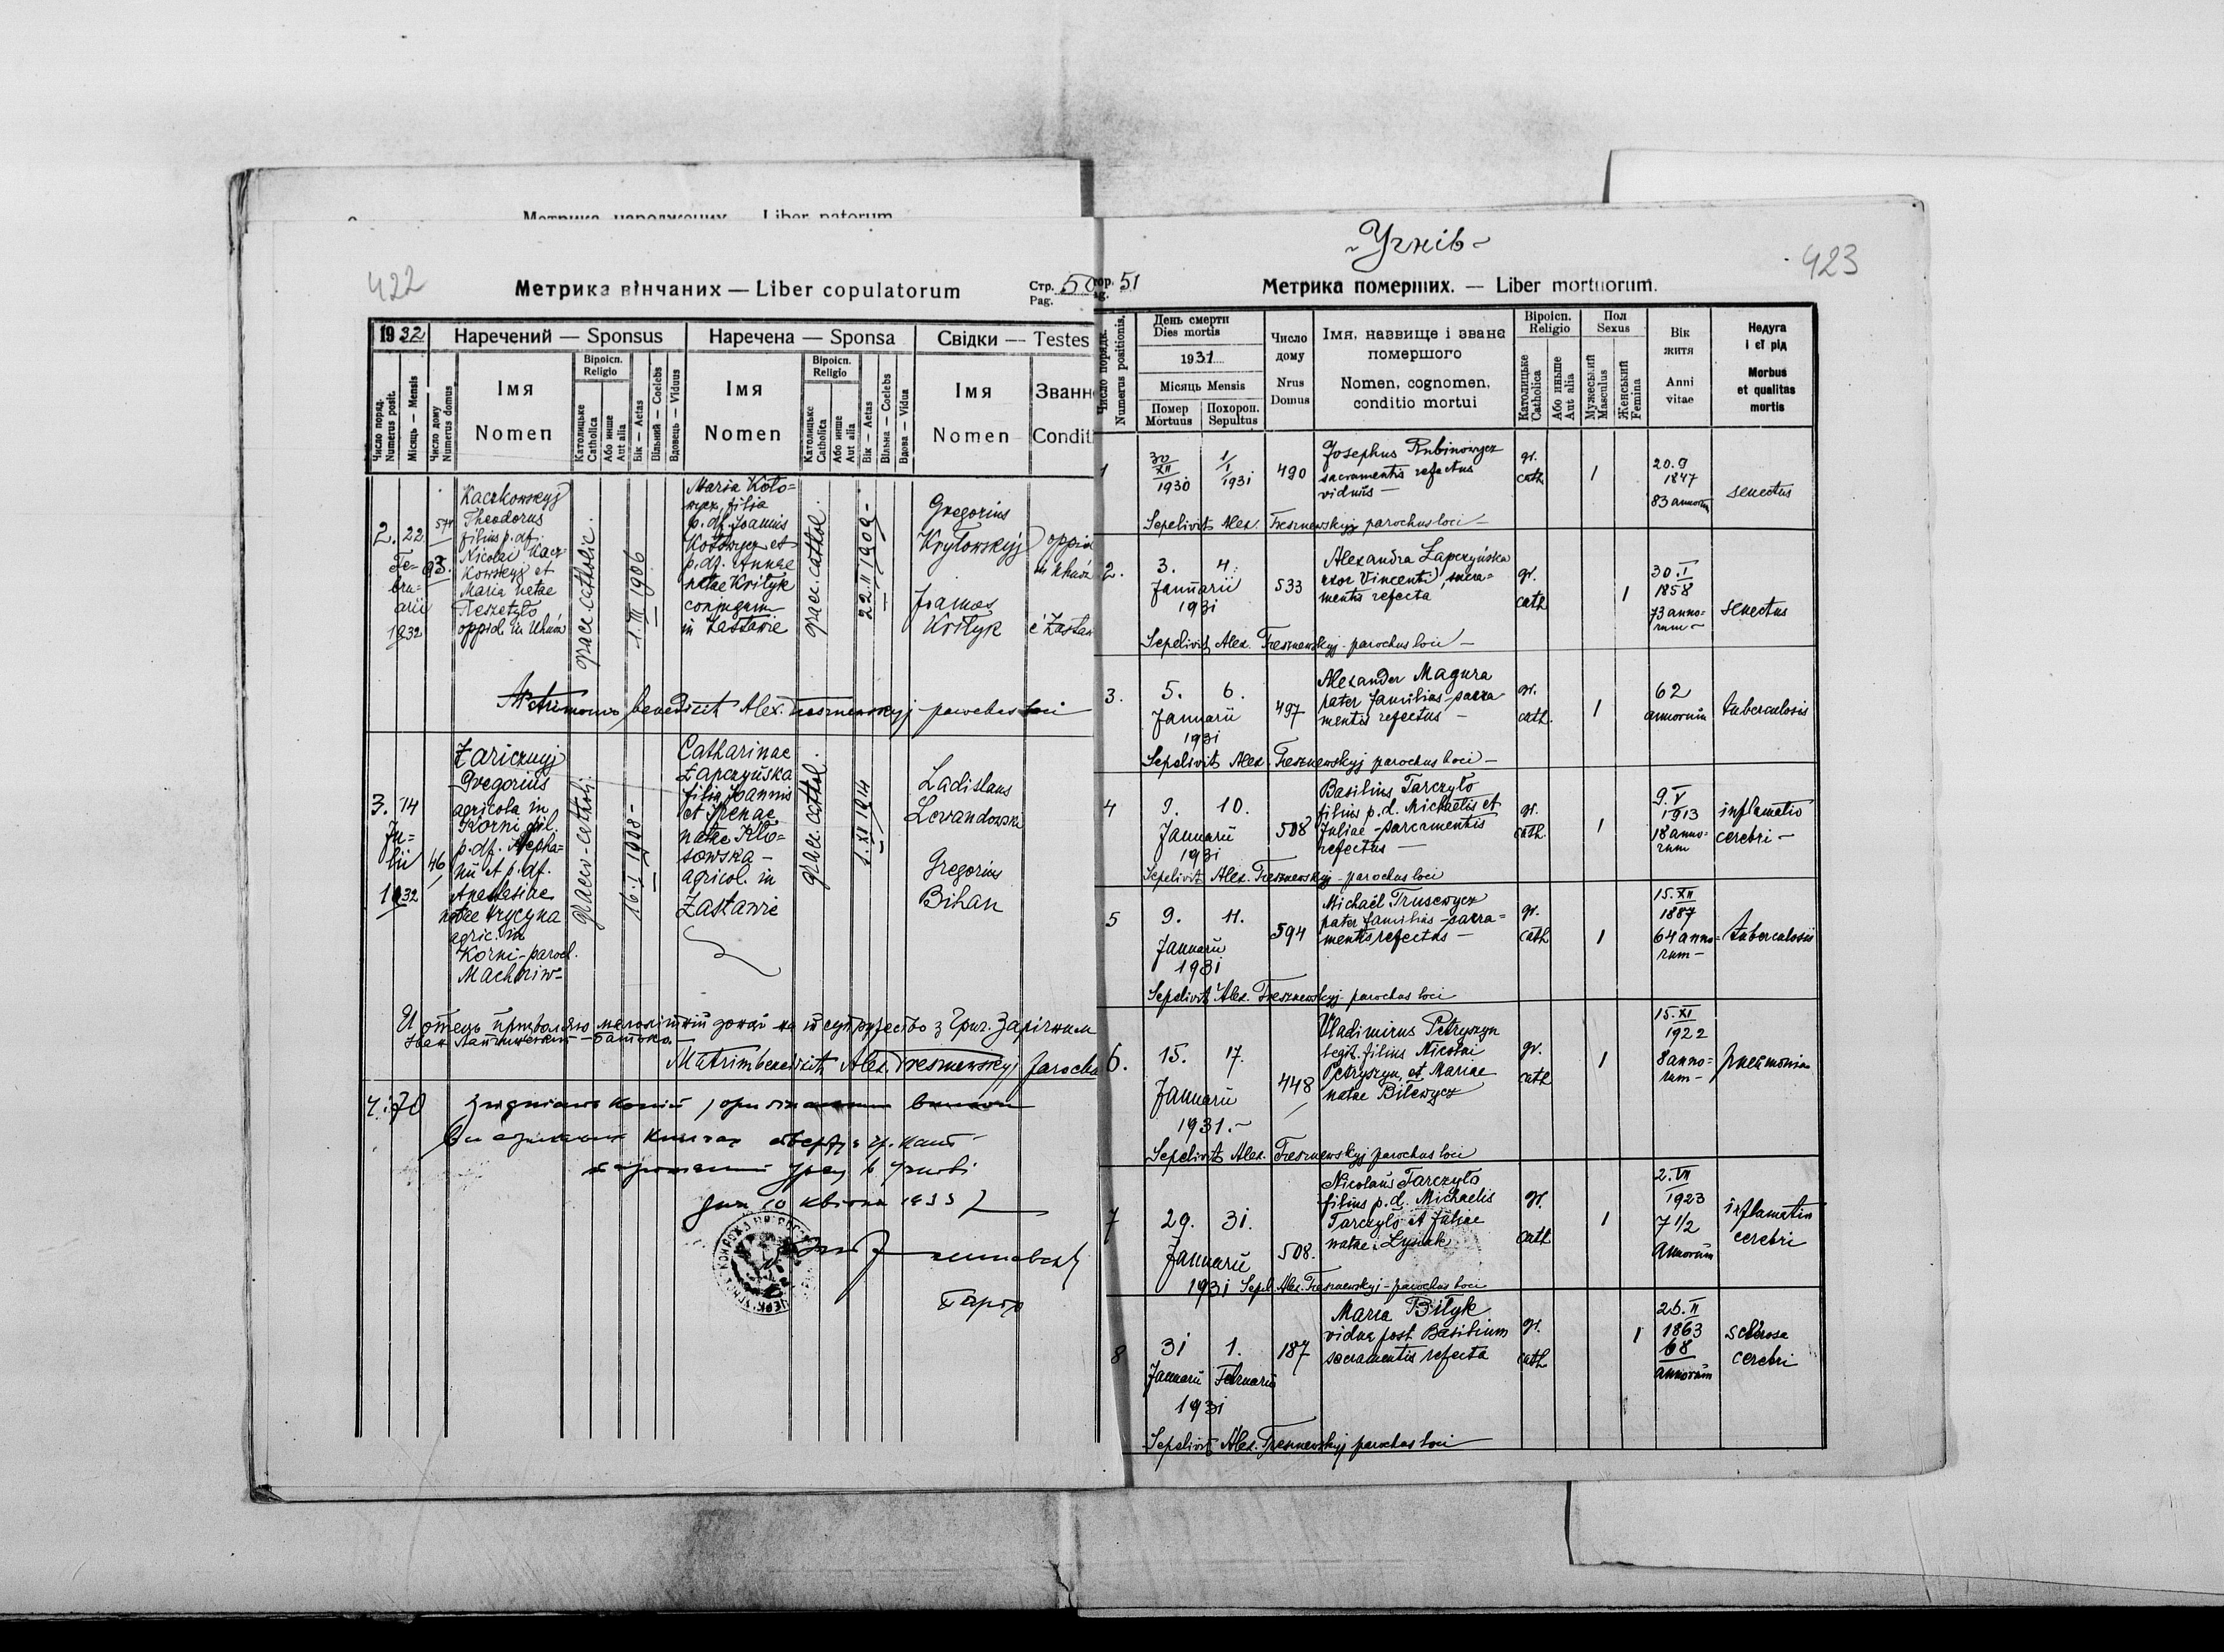 Метрика народжених — Liber natorum
422
Метрика вінчаних — Liber copulatorum
Стр. Pag. 50
1932
Наречений — Sponsus
Наречена — Sponsa
Свідки — Testes
Число поряд. Numerus posit.
Місяць — Mensis
Число дому Numerus domus
Імя
Nomen
Віроісп. Religio
Католицьке Catholica
Або инше Aut alia
Вік — Aetas
Вільний — Coelebs
Вдовець — Viduus
Імя
Nomen
Віроісп. Religio
Католицьке Catholica
Або инше Aut alia
Вік — Aetas
Вільна — Coelebs
Вдова — Vidua
Імя
Nomen
Званн
Condit
2. 22
Fe=
bru=
arii
1932
93.
Kaczkowskyj
Theodorus
filius p. df.
Nicolai Kacz
kowskyj et
Maria natae
oppid. in Uhniv
graec-catholic.
1. III 1906
Maria Koto=
wycz, filia
p. df. Joannis
Kotowycz et
p. df. Annae
natae Krityk
conjugum
in Zastawie
graec. cathol.
22. II 1909 -
Gregorius
Krytowskyj
oppid
Joannes
Krityk
é Zastaw
Matrimonio benedixit Alex. Tresznewskyj parochus loci
3. 14
Ju=
lii
1932
46
Zaricznyj
Gregorius
agricola in
Korni fil.
p. df. Stepha=
nii et p. df.
Anastasiae
natae Hrycyna
agric. in
Korni - paroch.
Machniw=
graeco-catholi.
16. I 1908 -
Catharinae
Łapczyńska
filia Joannis
et Irenae
natae Kło=
sowska -
agricol. in
Zastawie
graec. cathol.
1. XI 1914
Ladislaus
Lewandowski
Gregorius
Bihan
Matrim benedixit Alex. Tresznewskyj parochu
дня 10 квітня 1933
Парох
~ Угнів ~
423
ор. 51
Метрика померших. — Liber mortuorum.
Число порядк. Numerus positionis.
День смерти
Dies mortis
1931
Місяць Mensis
Помер Mortuus
Похорон. Sepultus
Число дому
Nrus Domus
Імя,назвище і зване
помершого
Nomen, cognomen,
conditio mortui
Віроісп. Religio
Католицьке Catholica
Або иньше Aut alia
Пол Sexus
Мужеський Masculus
Женський Femina
Вік житя
Anni vitae
Недуга і єї рід
Morbus et qualitas mortis
1
30 XII 1930
1 I 1931
490
Josephus Rubinowycz
sacramentis refectus
viduus -
gr. cath
1
20. 9 1847
83 annorum
senectus
Sepelivit Alex. Tresznewskyj parochus loci -
2.
3. 4.
Januarii
1931
533
Alexandra Łapczyńska
uxor Vincenti, sacra=
mentis refecta
gr. cath
1
30. I 1858
73 anno=
rum -
senectus
Sepelivit Alex. Tresznewskyj - parochus loci -
3.
5. 6.
Januarii
1931
497
Alexander Magura
pater familias - sacra
mentis refectus -
gr. cath.
1
62
annorum
tuberculosis
Sepelivit Alex. Tresznewskyj parochus loci -
4
9. 10.
Januarii
1931
508
Basilius Tarczyło
filius p. d. Michaelis et
Juliae - sarcamentis
refectus -
gr. cath.
1
9. V 1913
18 anno=
rum
inflamatio
cerebri -
Sepelivit Alex. Tresznewskyj - parochus loci
5
9. 11.
Januarii
1931
594
Michaël Trusewycz
pater familias - sacra=
mentis refectus -
gr. cath
1
15. XII 1887
64 anno=
rum -
tuberculosis
Sepelivit Alex. Tresznewskyj - parochus loci
6.
15. 17.
Januarii
1931. -
448
Vladimirus Petryszyn
legit. filius Nicolai
Petryszyn et Mariae
natae Bilewycz
gr. cath
1
15. XI 1922
8 anno=
rum -
pneumonia
Sepelivit Alex. Tresznewskyj parochus loci
7
29. 31.
Januarii
1931
508.
Nicolaus Tarczyło
filius p. d. Michaelis
Tarczyło et Juliae
natae Lysiak
gr. cath
1
2. VII 1923
7 1/2
annorum
inflamatio
cerebri
Sepel. Alex. Tresznewskyj - parochus loci
8
31 1.
Januarii Februarii
1931
187
Maria Biłyk
vidua post Basilium
sacramentis refecta
gr. cath
1
26. II 1863
68
annorum
sclerosa
cerebri
Sepelivit Alex. Tresznewskyj parochus loci